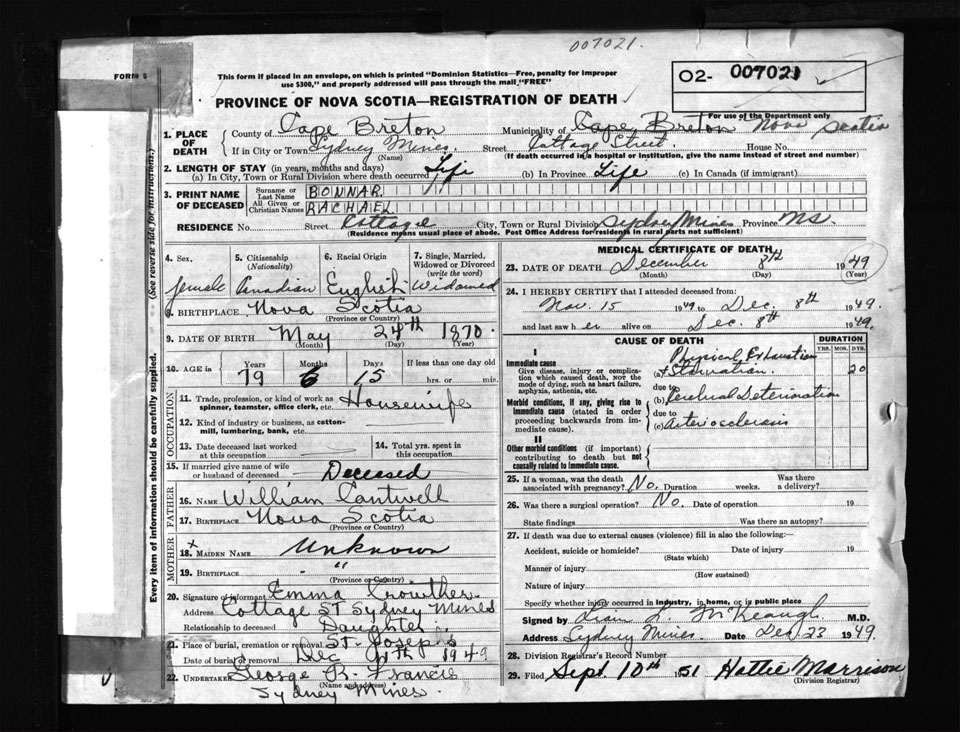 007021.
FORM 6
This form if placed in an envelope, on which is printed "Dominion Statistics—Free, penalty for improper
use $300," and properly addressed will pass through the mail "FREE"
O2- 007021
PROVINCE OF NOVA SCOTIA—REGISTRATION OF DEATH
For use of the Department only
1. PLACE OF DEATH
County of Cape Breton Municipality of Cape Breton Nova Scotia
If in City or Town Sydney Mines. Street Cottage Street. House No.
(Name) (If death occurred in a hospital or institution, give the name instead of street and number)
2. LENGTH OF STAY (in years, months and days)
(a) In City, Town or Rural Division where death occurred Life (b) In Province Life (c) In Canada (if immigrant)
3. PRINT NAME OF DECEASED
Surname or Last Name BONNAR.
All Given or Christian Names RACHAEL
RESIDENCE No. Street Cottage City, Town or Rural Division Sydney Mines Province N.S.
(Residence means usual place of abode. Post Office Address for residents in rural parts not sufficient)
4. Sex. 5. Citizenship (Nationality) 6. Racial Origin 7. Single, Married, Widowed or Divorced (write the word)
female Canadian English Widowed
8. BIRTHPLACE Nova Scotia
(Province or Country)
9. DATE OF BIRTH May 24th 1870.
(Month) (Day) (Year)
10. AGE in Years Months Days If less than one day old
79 6 15 hrs. or min.
OCCUPATION
11. Trade, profession, or kind of work as spinner, teamster, office clerk, etc. Housewife
12. Kind of industry or business, as cotton-mill, lumbering, bank, etc.
13. Date deceased last worked at this occupation
14. Total yrs. spent in this occupation
15. If married give name of wife or husband of deceased Deceased
FATHER
16. NAME William Cantwell
17. BIRTHPLACE Nova Scotia
(Province or Country)
MOTHER
18. x MAIDEN NAME Unknown
19. BIRTHPLACE "
(Province or Country)
20. Signature of informant Emma Crowther
Address Cottage ST Sydney Mines
Relationship to deceased Daughter.
21. Place of burial, cremation or removal St. Joseph's
Date of burial or removal Dec 9th 1949
22. UNDERTAKER George R. Francis
(Name and address)
Sydney Mines.
Every item of information should be carefully supplied. (See reverse side for instructions.)
MEDICAL CERTIFICATE OF DEATH
23. DATE OF DEATH December 8th 1949
(Month) (Day) (Year)
24. I HEREBY CERTIFY that I attended deceased from:
Nov. 15 1949, to Dec. 8th 1949.
and last saw her alive on Dec. 8th 1949.
CAUSE OF DEATH DURATION
YRS. MOS. DYS.
I
Immediate cause
Give disease, injury or complication which caused death, not the mode of dying, such as heart failure, asphyxia, asthenia, etc.
Physical Exhaustion
(a) + Starvation. 20
due to
Morbid conditions, if any, giving rise to immediate cause (stated in order proceeding backwards from immediate cause).
(b) Cerebral Deterioration
due to
(c) Arteriosclerosis
II
Other morbid conditions (if important) contributing to death but not causally related to immediate cause.
25. If a woman, was the death associated with pregnancy? No. Duration weeks. Was there a delivery?
26. Was there a surgical operation? No. Date of operation 19
State findings Was there an autopsy?
27. If death was due to external causes (violence) fill in also the following:—
Accident, suicide or homicide? Date of injury 19
(State which)
Manner of injury
(How sustained)
Nature of injury
Specify whether injury occurred in industry, in home, or in public place
Signed by McKeough M.D.
Address Sydney Mines. Date Dec 23 1949.
28. Division Registrar's Record Number
29. Filed Sept. 10th 1951 Hattie Marrison
(Division Registrar)